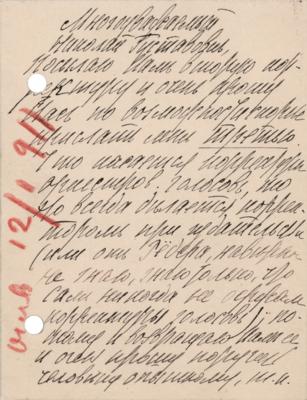 Многоуважаемый
Николай Густавович,
посылаю Вамъ вторую кор-
ректуру и очень прошу
Васъ по возможности скорее
прислать мне третью.
Что касается корректуры
оркестров. голосовъ, то
это всегда делается коррек-
торомъ при издательстве
(или отъ Рёдера, наверно
не знаю, знаю только, что
самъ никогда не держалъ
корректуры голосовъ), по-
тому и возвращаю Вамъ ее
и очень прошу поручить
человеку опытному, т. к.
отв 12/I 911